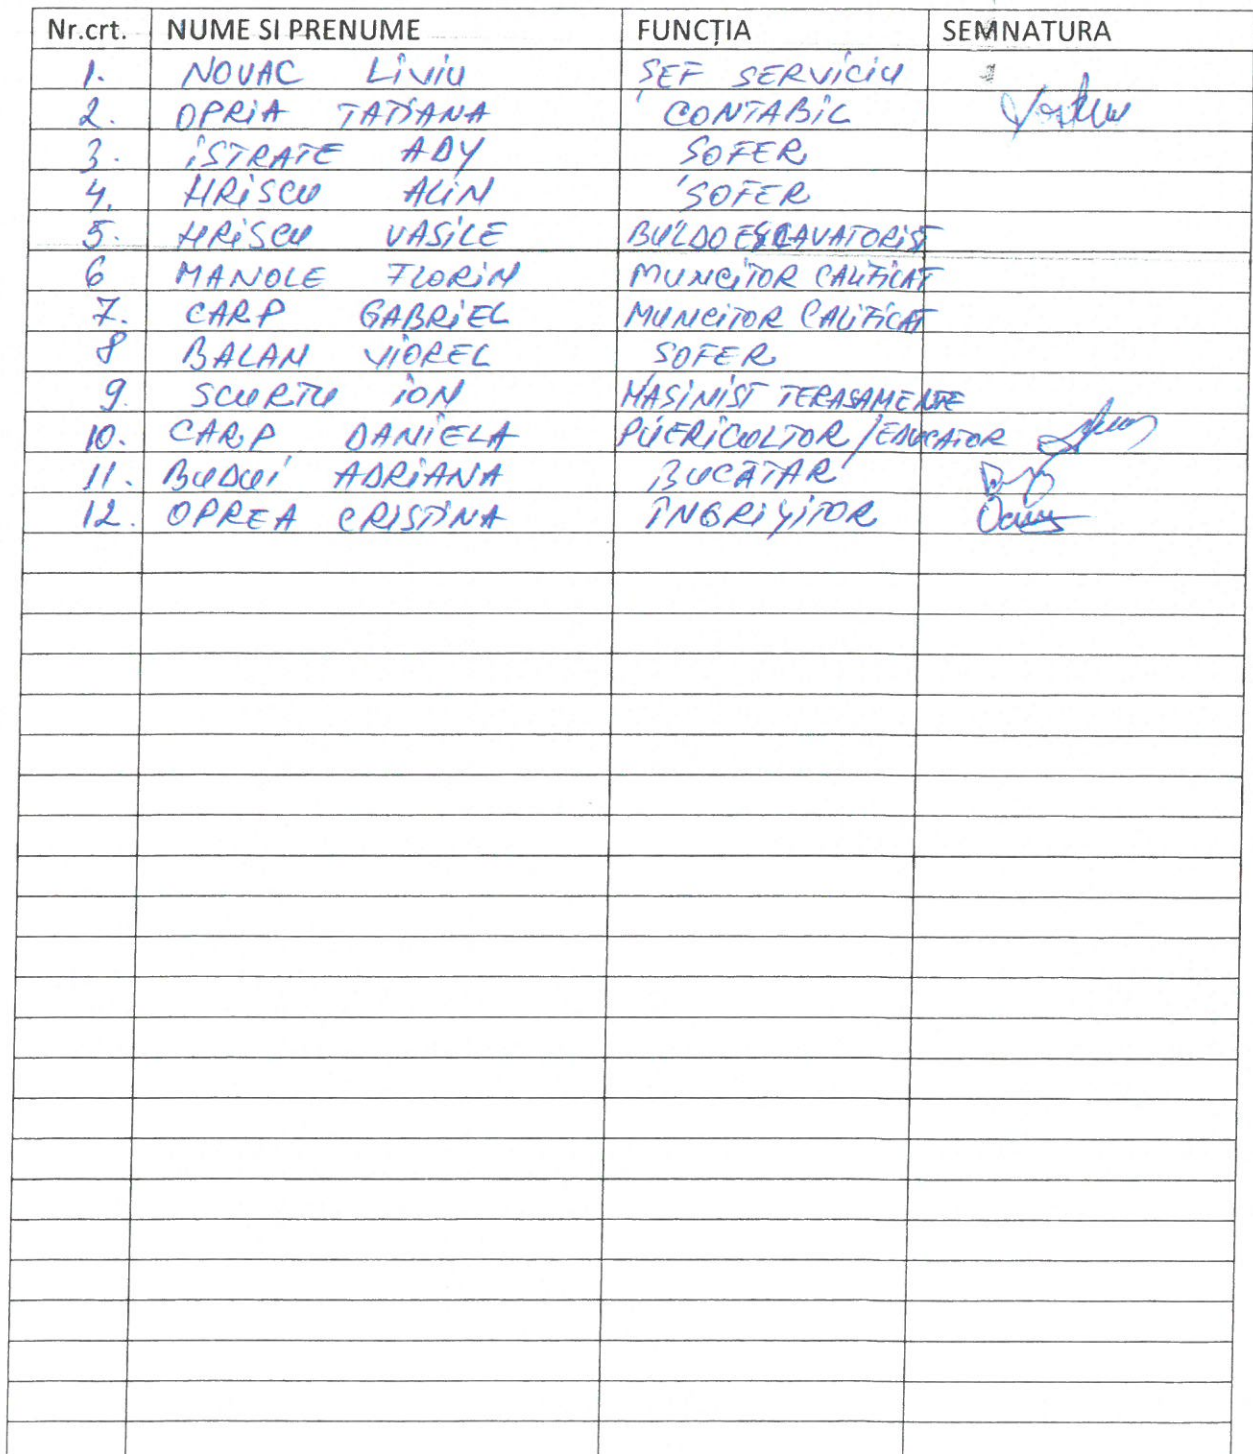 Nr.crt. NUME SI PRENUME FUNCȚIA SEMNATURA
1. NOVAC LIVIU ȘEF SERVICIU
2. OPRIA TATIANA CONTABIL
3. ISTRATE ADY SOFER
4. HRISCU ALIN SOFER
5. HRISCU VASILE BULDOEXCAVATORIST
6 MANOLE FLORIN MUNCITOR CALIFICAT
7. CARP GABRIEL MUNCITOR CALIFICAT
8 BALAN VIOREL SOFER
9. SCURTU ION MASINIST TERASAMENTE
10. CARP DANIELA PUERICULTOR/EDUCATOR
11. BUDUI ADRIANA BUCĂTAR
12. OPREA CRISTINA ÎNGRIJITOR